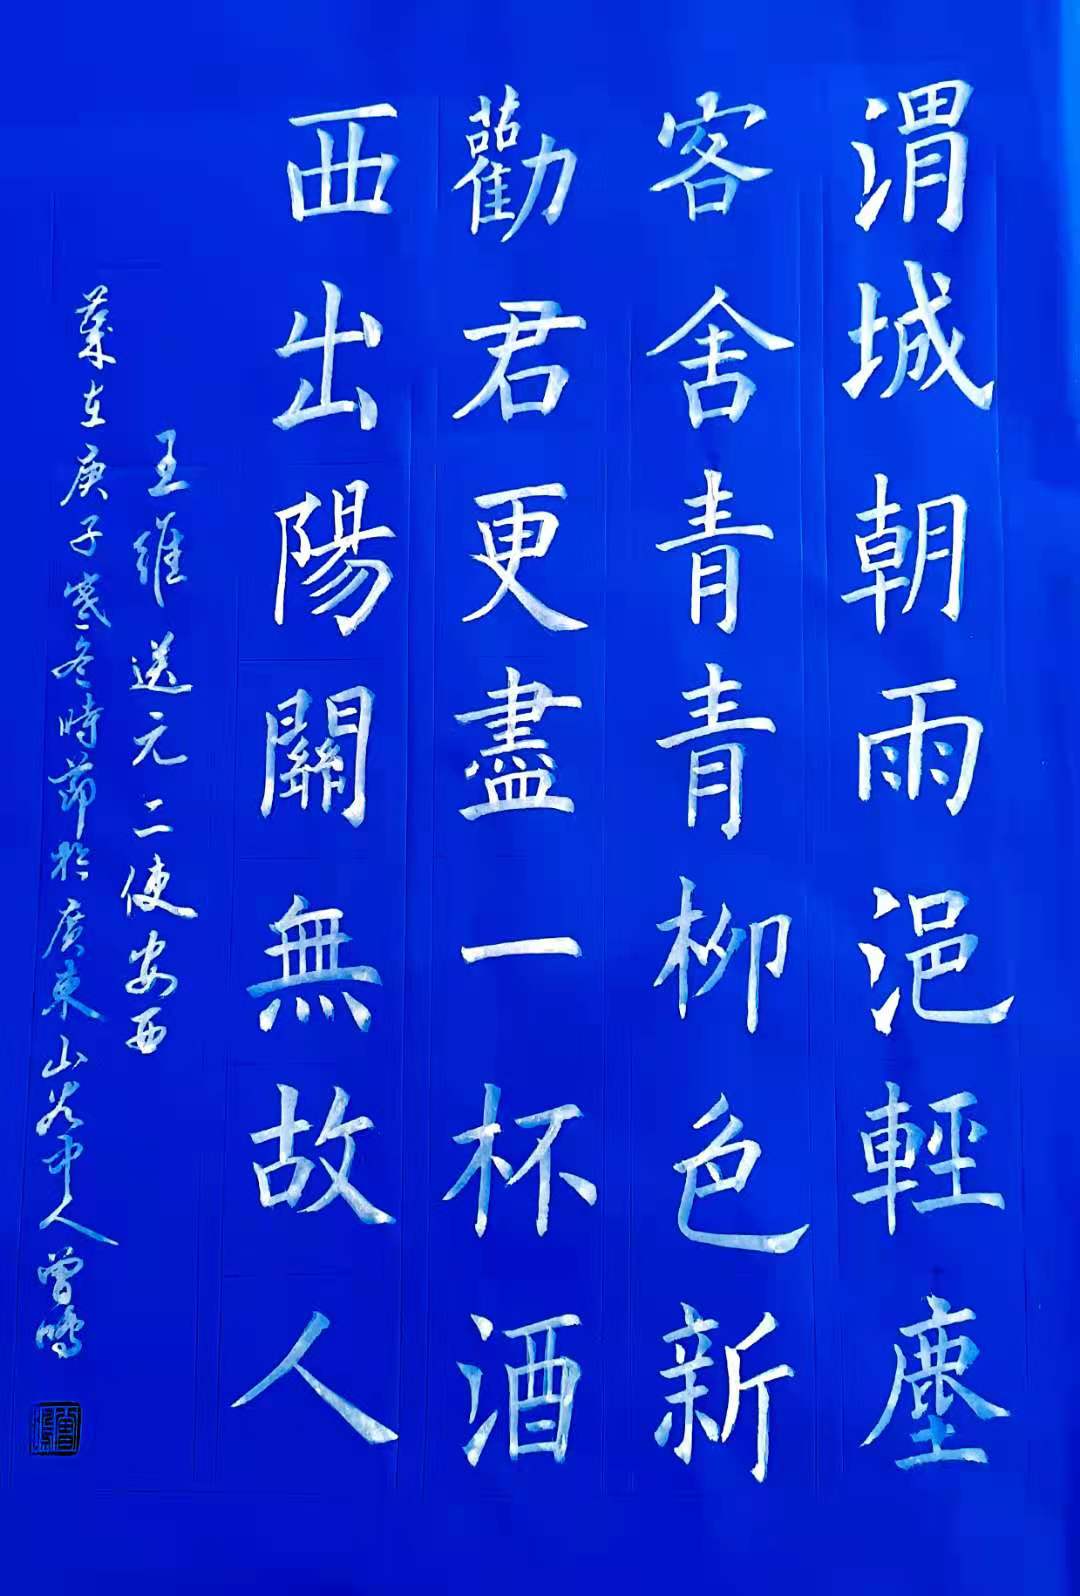 渭城朝雨浥輕塵
客舍青青柳色新
勸君更盡一杯酒
西出陽關無故人
王維送元二使安西
歲在庚子寒冬時節於廣東山谷中人曾鳴